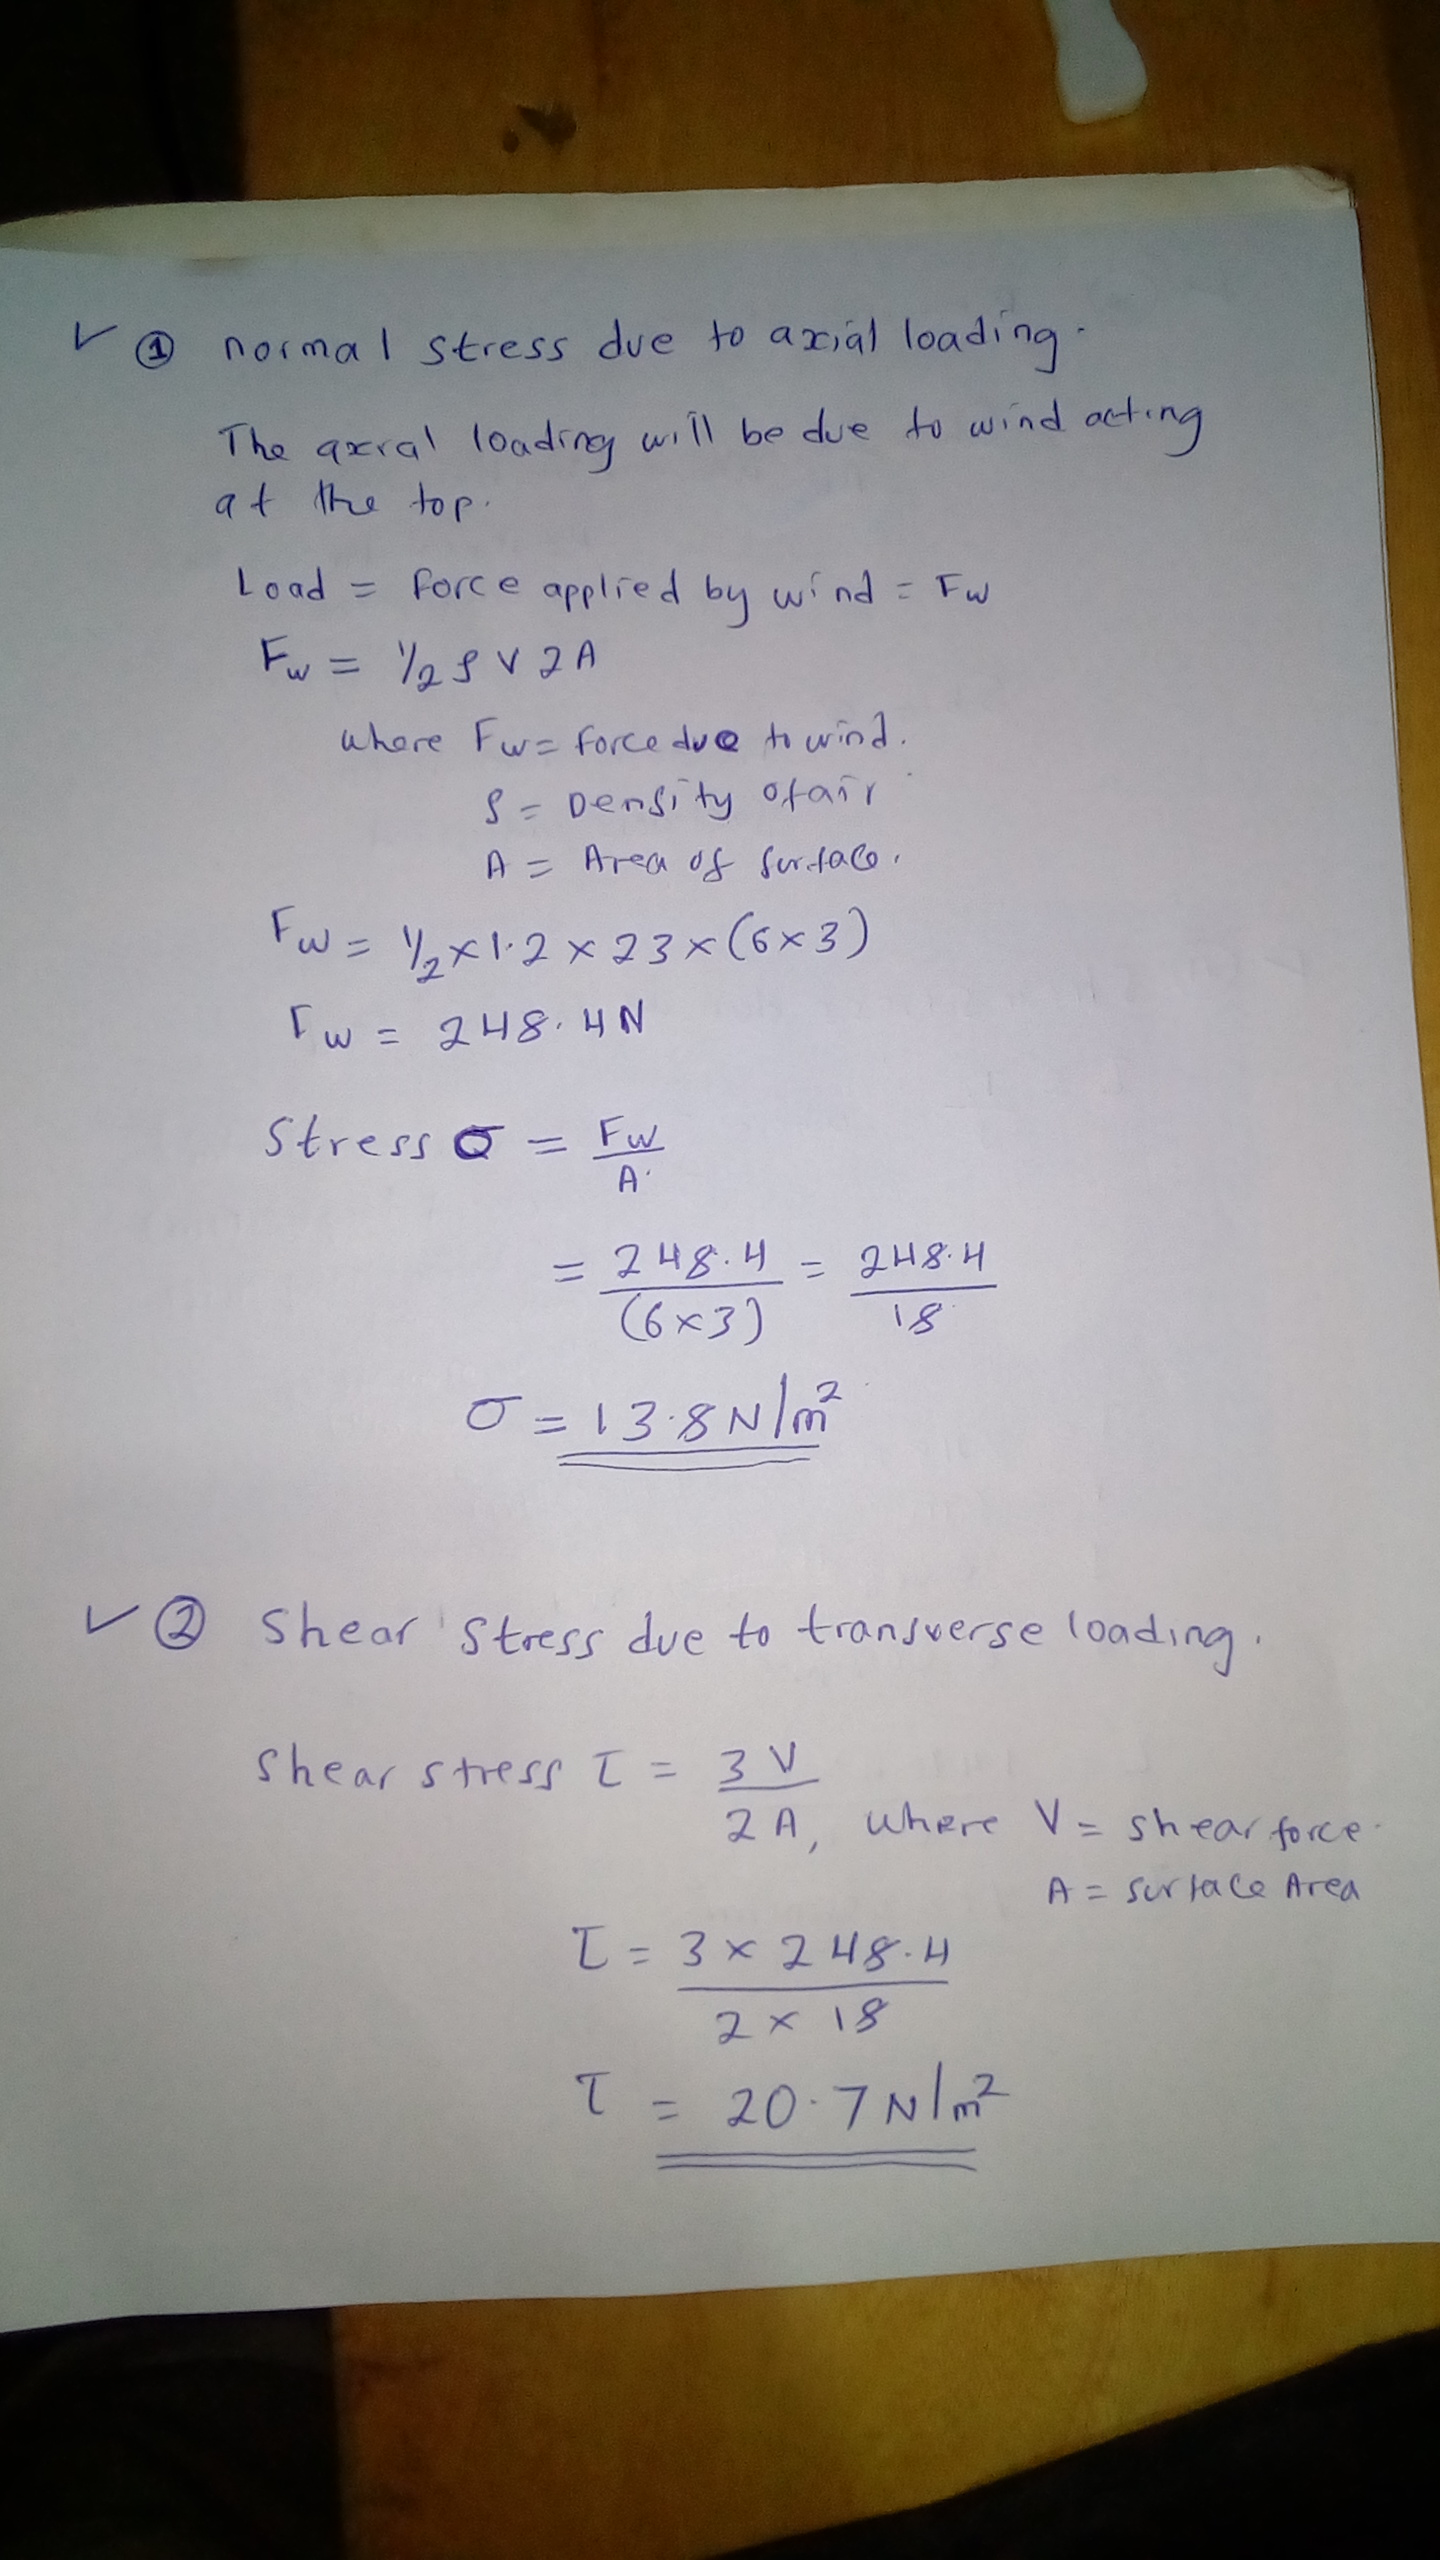 ✓ ① normal stress due to axial loading.
The axial loading will be due to wind acting
at the top.
Load = force applied by wind = Fw
Fw = 1/2 ρ V 2 A
where Fw = force due to wind.
ρ = Density of air
A = Area of surface.
Fw = 1/2 × 1.2 × 23 × (6 × 3)
Fw = 248.4 N
Stress σ = Fw / A
= 248.4 / (6 × 3) = 248.4 / 18
σ = 13.8 N/m²
✓ ② Shear stress due to transverse loading.
Shear stress τ = 3V / 2A, where V = shear force.
A = surface Area
τ = 3 × 248.4 / 2 × 18
τ = 20.7 N/m²